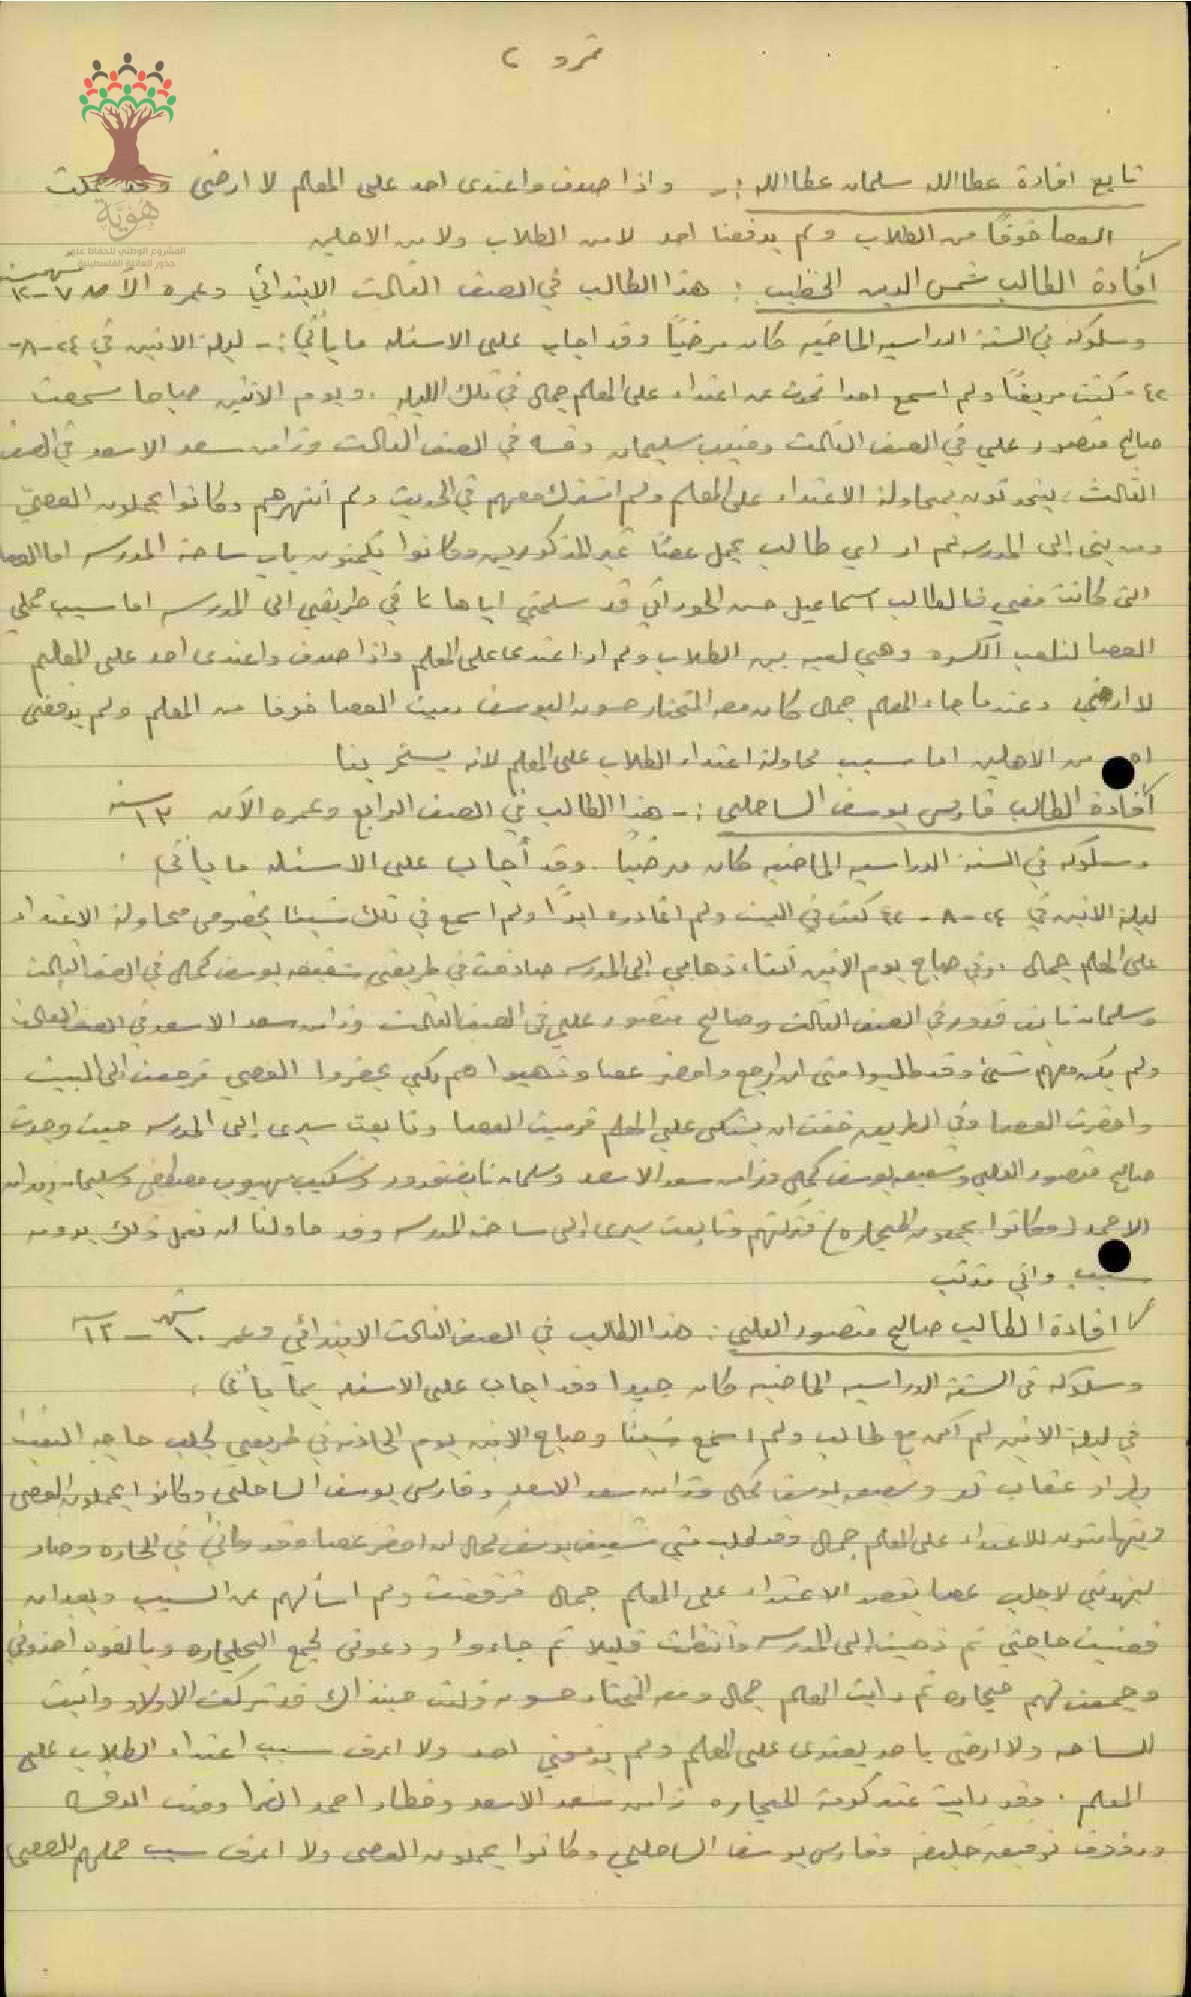 نمره ٢
هُويَّة
المشروع الوطني للحفاظ على
جذور العائلة الفلسطينية
تابع افادة عطاالله سلمان عطاالله :- واذا صدف واعتدى احد على المعلم لا ارضى وقد حملت
العصا خوفًا من الطلاب ولم يدفعنا احد لا من الطلاب ولا من الاهلين
افادة الطالب شمس الدين الخطيب : هذا الطالب في الصف الثالث الابتدائي وعمره الآن ٧-١٢
وسلوكه في السنة الدراسيه الماضيه كان مرضيًا وقد اجاب على الاسئله ما يأتي :- ليلة الاثنين في ٢٤-٨-
٤٢ كنت مريضًا ولم اسمع احدا تحدث عن اعتداء على المعلم جمال في تلك الليله . ويوم الاثنين صباحا سمعت
صالح منصور علي في الصف الثالث وسليمان في الصف الثالث وزامن سعد الاسعد في الصف
الثالث ، يتحدثون بمحاولة الاعتداء على المعلم ولم اشترك معهم في الحديث ولم انتهرهم وكانوا يحملون العصي
الى المدرسه لم ار اي طالب يحمل عصًا غير المذكورين وكانوا باب ساحة المدرسه اما العصا
التي كانت معي فالطالب اسماعيل حسن الحوراني قد سلمني اياها في طريقي الى المدرسه اما سبب حملي
العصا لنلعب الكسره وهي لعبه بين الطلاب ولم ار اعتدى على المعلم واذا صدف واعتدى احد على المعلم
لا ارضى وعندما جاء المعلم جمال كان معه المختار حسون اليوسف رميت العصا خوفا من المعلم ولم يدفعني
احد من الاهلين اما سبب محاولة اعتداء الطلاب على المعلم لانه يسخر بنا
افادة الطالب فارس يوسف الساحلي :- هذا الطالب في الصف الرابع وعمره الآن ١٣ سنه
وسلوكه في السنة الدراسيه الماضيه كان مرضيًا . وقد أجاب على الاسئله ما يأتي :
ليلة الاثنين في ٢٤-٨-٤٢ كنت في البيت ولم اغادره ابدًا ولم اسمع في تلك شيئا بخصوص محاولة الاعتداء
على المعلم جمال . وفي صباح يوم الاثنين اثناء ذهابي الى المدرسه صادفت في طريقي شفيق يوسف كمال في الصف الثالث
وسلمان نايف قدور في الصف الثالث وصالح منصور علي في الصف الثالث وزامن سعد الاسعد في الصف الثالث
ولم يكن معهم شئ وقد طلبوا مني ان ارجع واحضر عصا وذهبوا هم لكي يحضروا العصي فرجعت الى البيت
واحضرت العصا وفي الطريق خفت ان يشتكى علي المعلم فرميت العصا وتابعت سيري الى المدرسه حيث وجدت
صالح منصور العلي وشفيق يوسف كمال وزامن سعد الاسعد وسلمان نايف قدور وشكيب صهيون مصطفى وسليمان زيدان
الاحمد (وكانوا يجمعون الحجاره) فتركتهم وتابعت سيري الى ساحة المدرسه وقد حاولنا ان نعمل ذلك بدون
سبب واني مذنب
افادة الطالب صالح منصور العلي : هذا الطالب في الصف الثالث الابتدائي وعمره ١٠ شهر - ١٢ سنه
وسلوكه في السنة الدراسيه الماضيه كان جيدا وقد اجاب على الاسئله بما يأتي :
في ليلة الاثنين لم اكن مع طالب ولم اسمع شيئًا وصباح الاثنين يوم الحادثه في طريقي لجلب حاجه التقيت
وشفيق يوسف كمال وزامن سعد الاسعد وفارس يوسف الساحلي وكانوا يحملون العصي
ويتهامسون للاعتداء على المعلم جمال وقد طلب مني شفيق يوسف كمال ان احضر عصا وقد في الحاره وصار
لجلب عصا بقصد الاعتداء على المعلم جمال فرفضت ولم اسألهم عن السبب وبعد ان
قضيت حاجتي ثم ذهبت الى المدرسه وانتظرت قليلا ثم جاءوا ودعوني لجمع الحجاره وبالقوه اخذوني
وجمعت لهم حجاره ثم رايت المعلم جمال ومعه المختار حسون وكنت حينذاك قد تركت الاولاد وأتيت
للساحه ولا ارضى باحد يعتدى على المعلم ولم يدفعني احد ولا اعرف سبب اعتداء الطلاب على
المعلم . وقد رايت عند كومة الحجاره زامن سعد الاسعد وخطار احمد
توفيق خليفه وفارس يوسف الساحلي وكانوا يحملون العصي ولا اعرف سبب حملهم للعصي